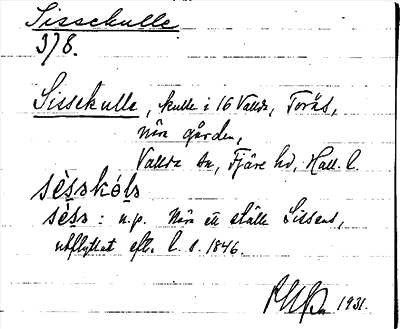 Sissekulle
378.
Sissekulle, kulle i 16 Vallda, Torås,
nära gården,
Vallda sn, Fjäre hd, Hall. l.
sè̱sɜkɵ́lɜ
sè̱sɜ: n.p. Nära ett ställe Sissens,
utflyttat eft. l. s. 1846.
1931.